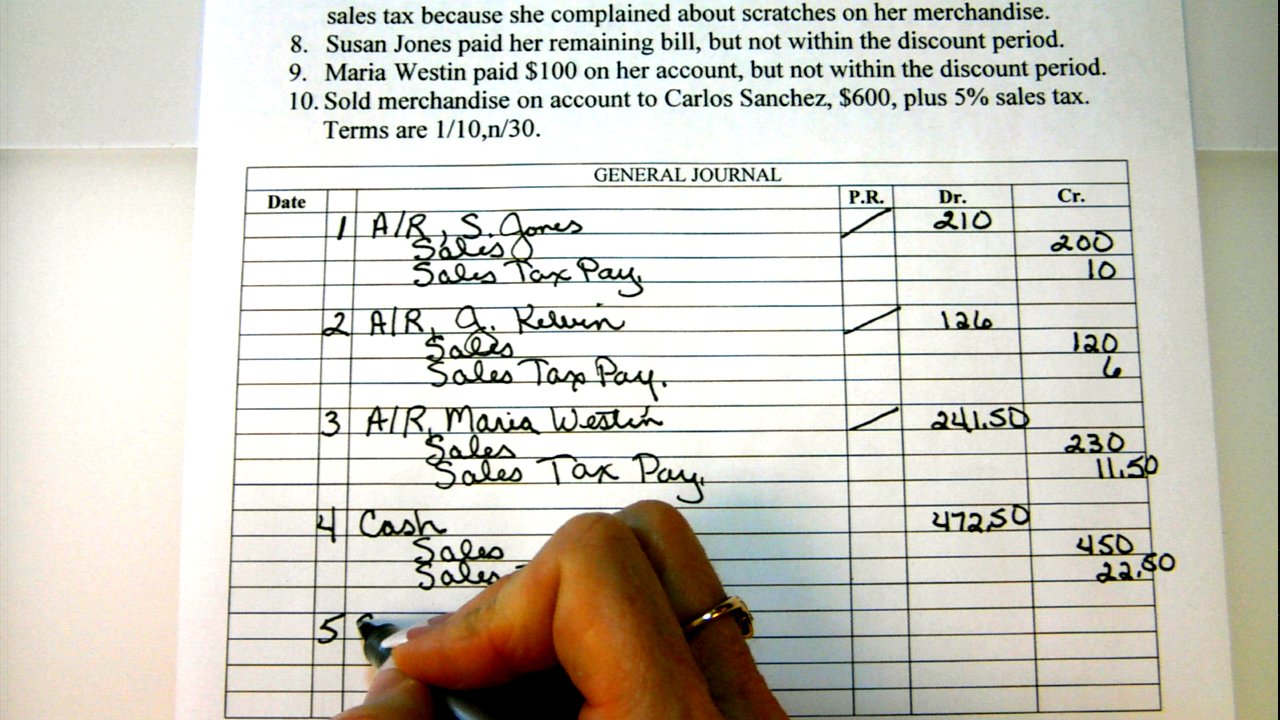 sales tax because she complained about scratches on her merchandise.
8. Susan Jones paid her remaining bill, but not within the discount period.
9. Maria Westin paid $100 on her account, but not within the discount period.
10. Sold merchandise on account to Carlos Sanchez, $600, plus 5% sales tax.
Terms are 1/10,n/30.
GENERAL JOURNAL
Date P.R. Dr. Cr.
1 A/R, S. Jones 210
Sales 200
Sales Tax Pay. 10
2 A/R, J. Kelvin 126
Sales 120
Sales Tax Pay. 6
3 A/R, Maria Westin 241.50
Sales 230
Sales Tax Pay. 11.50
4 Cash 472.50
Sales 450
Sales 22.50
5